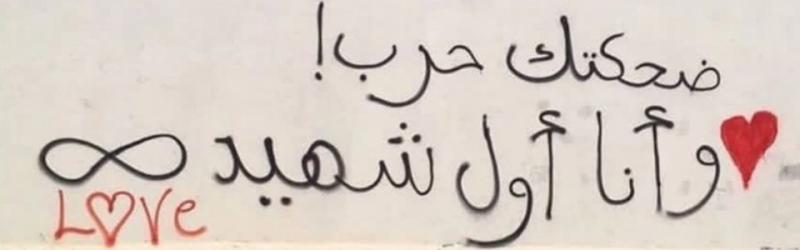 ضحكتك حرب!
وأنا أول شهيد
LOVe